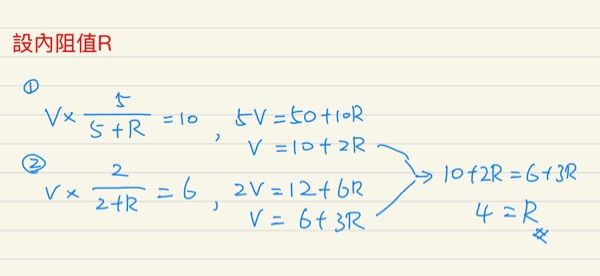 設內阻值R
①
V× 5/(5+R) =10 , 5V=50+10R
V =10+2R
②
V× 2/(2+R) =6 , 2V=12+6R
V= 6+3R
→ 10+2R=6+3R
4=R